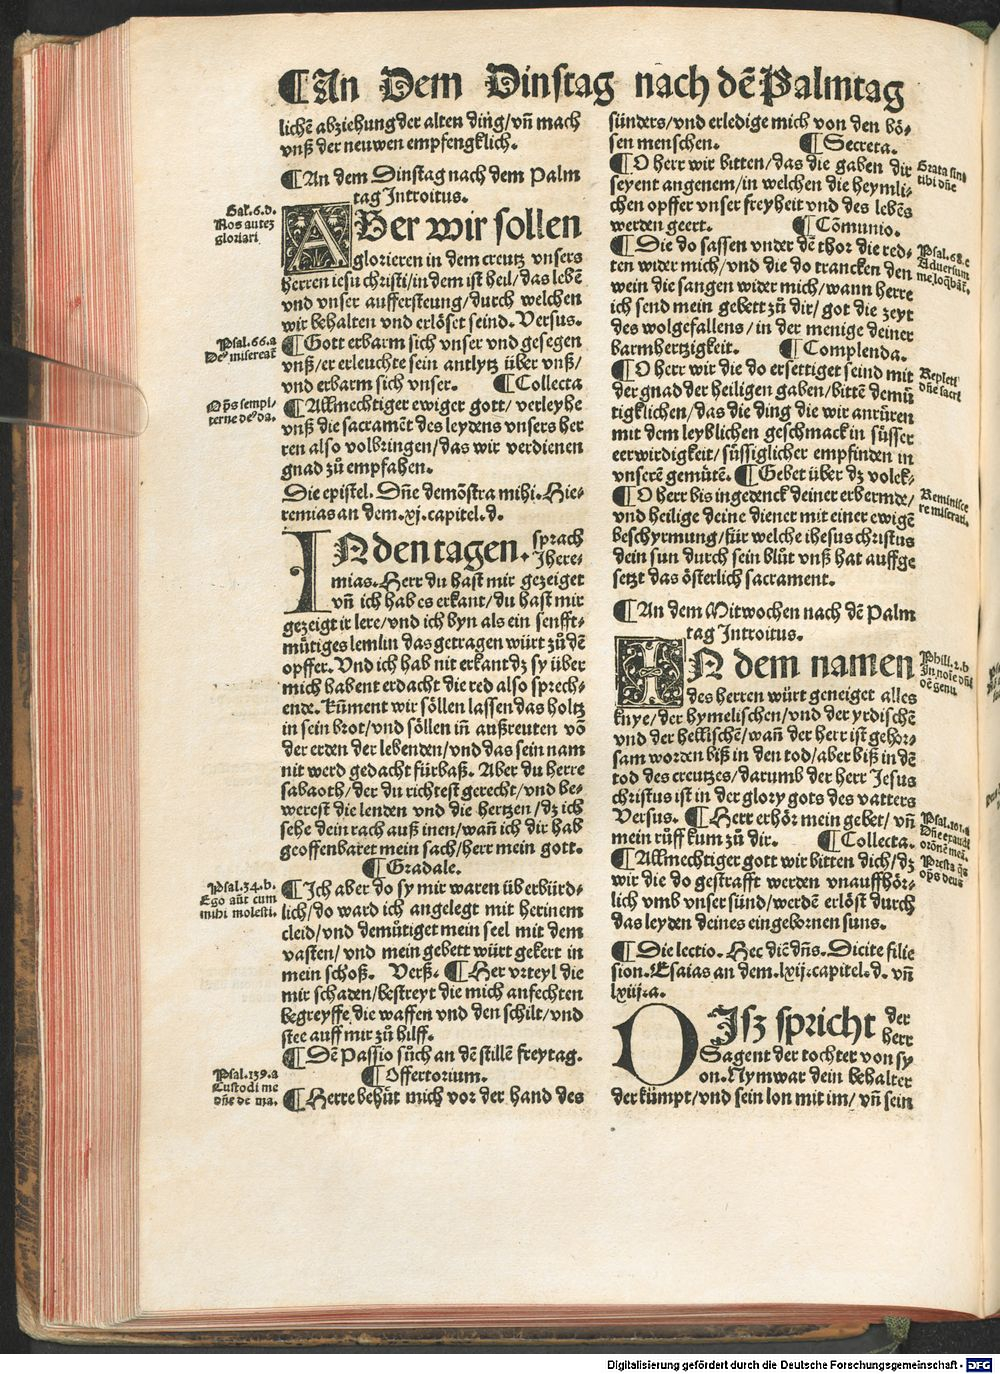 ¶An Dem Dinstag nach dē Palmtag
lichē abziehung der alten ding/vn̄ mach
vnß der neuwen empfengklich.
¶An dem Dinstag nach dem Palm
tag Introitus.
Gal.6.d.
Nos autez
gloriari
ABer wir sollen
glorieren in dem creutz vnsers
herren iesu christi/in dem ist heil/das lebē
vnd vnser auffersteung/durch welchen
wir behalten vnd erlöset seind. Versus.
Psal.66.a
De9 misereat̄
¶Gott erbarm sich vnser vnd gesegen
vnß/er erleuchte sein antlytz über vnß/
vnd erbarm sich vnser. ¶Collecta
Op̄s sempi-
terne de9 da.
¶Allmechtiger ewiger gott/verleyhe
vnß die sacramēt des leydens vnsers her
ren also volbringen/das wir verdienen
gnad zů empfahen.
Die epistel. Dn̄e demōstra mihi. Hie-
remias an dem .xj. capitel. d.
IN den tagen. sprach
Ihere-
mias. Herr du hast mir gezeiget
vn̄ ich hab es erkant/du hast mir
gezeigt ir lere/vnd ich byn als ein senfft-
mütiges lemlin das getragen würt zů dē
opffer. Vnd ich hab nit erkant dz sy über
mich habent erdacht die red also sprech-
ende. Kum̄ent wir söllen lassen das holtz
in sein brot/vnd söllen in̄ außreuten vō
der erden der lebenden/vnd das sein nam
nit werd gedacht fürbaß. Aber du herre
sabaoth/der du richtest gerecht/vnd be-
werest die lenden vnd die hertzen/dz ich
sehe dein rach auß inen/wan̄ ich dir hab
geoffenbaret mein sach/herr mein gott.
¶Gradale.
Psal.34.b.
Ego aūt cum
mihi molesti.
¶Ich aber do sy mir waren überbürd-
lich/do ward ich angelegt mit herinem
cleid/vnd demütiget mein seel mit dem
vasten/vnd mein gebett würt gekert in
mein schoß. Verß. ¶Her vrteyl die
mir schaden/bestreyt die mich anfechten
begreyffe die waffen vnd den schilt/vnd
stee auff mir zů hilff.
¶Dē Passio sůch an dē stillē freytag.
¶Offertorium.
Psal.139.a
Custodi me
dn̄e de ma.
¶Herre behüt mich vor der hand des
sünders/vnd erledige mich von den bö-
sen menschen. ¶Secreta.
Grata sint
tibi dn̄e
¶O herr wir bitten/das die gaben dir
seyent angenem/in welchen die heymli-
chen opffer vnser freyheit vnd des lebēs
werden geert. ¶Cōmunio.
Psal.68.c
Aduersum
me loqbāt̄.
¶Die do sassen vnder dē thor die red-
ten wider mich/vnd die do trancken den
wein die sangen wider mich/wann herre
ich send mein gebett zů dir/ got die zeyt
des wolgefallens/in der menige deiner
barmhertzigkeit. ¶Complenda.
Repleti
dn̄e sacri
¶O herr wir die do ersettiget seind mit
der gnad der heiligen gaben/bittē demü
tigklichen/das die ding die wir anrüren
mit dem leyblichen geschmack in süsser
eerwirdigkeit/süssiglicher empfinden in
vnserē gemütē. ¶Gebet über dz volck-
Reminisce
re miserati.
¶O herr bis ingedenck deiner erbermde/
vnd heilige deine diener mit einer ewigē
beschyrmung/für welche ihesus christus
dein sun durch sein blůt vnß hat auffge
setzt das österlich sacrament.
¶An dem Mitwochen nach dē Palm
tag Introitus.
Phili.2.b
In noīe dn̄i
oē genu
IN dem namen
des herren würt geneiget alles
knye/der hymelischen/vnd der yrdischē
vnd der hellischē/wan̄ der herr ist gehor-
sam worden biß in den tod/aber biß in dē
tod des creutzes/darumb der herr Jesus
christus ist in der glory gots des vatters
Versus. ¶Herr erhör mein gebet/ vn̄
mein rüff kum zů dir. ¶Collecta.
Psal.101.a
Dn̄e exaudi
orōnē meā.
Presta q̄s
op̄s deus
¶Allmechtiger gott wir bitten dich/dz
wir die do gestrafft werden vnauffhör-
lich vmb vnser sünd/werdē erlöst durch
das leyden deines eingebornen suns.
¶Die lectio. Hec dic̄ dn̄s. Dicite filie
sion. Esaias an dem .lxij. capitel. d. vn̄
lxiij.a.
DIsz spricht der
herr
Sagent der tochter von sy
on. Nym war dein behalter
der kümpt/vnd sein lon mit im/ vn̄ sein
Digitalisierung gefördert durch die Deutsche Forschungsgemeinschaft - DFG